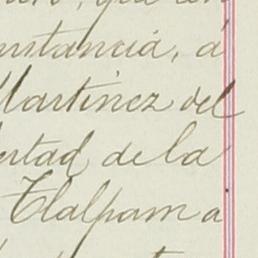 que en
nstancia, á
Martinez del
ertad de la
Tlalpam a